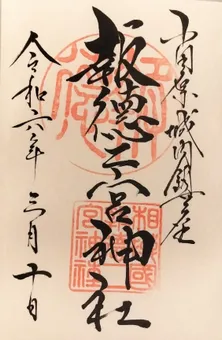 小田原城内鎮座
報徳二宮神社
令和六年 三月十日
相模國
宮神社